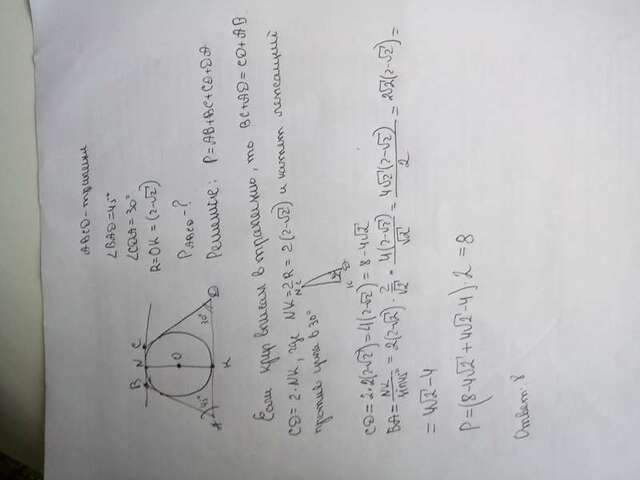 ABCD - трапеция
∠BAD = 45°
∠CDA = 30°
R = OK = (2-√2)
P ABCD - ?
Решение: P = AB + BC + CD + DA
B N C
O
45° 30°
A K D
Если круг вписан в трапецию, то BC + AD = CD + AB
CD = 2·NK, где NK = 2R = 2(2-√2) и катет лежащий
против угла в 30°
CD = 2·2(2-√2) = 4(2-√2) = 8-4√2
BA = NK/sin45° = 2(2-√2)·2/√2 = 4(2-√2)/√2 = 4√2(2-√2)/2 = 2√2(2-√2) =
= 4√2-4
P = (8-4√2+4√2-4)·2 = 8
Ответ: 8